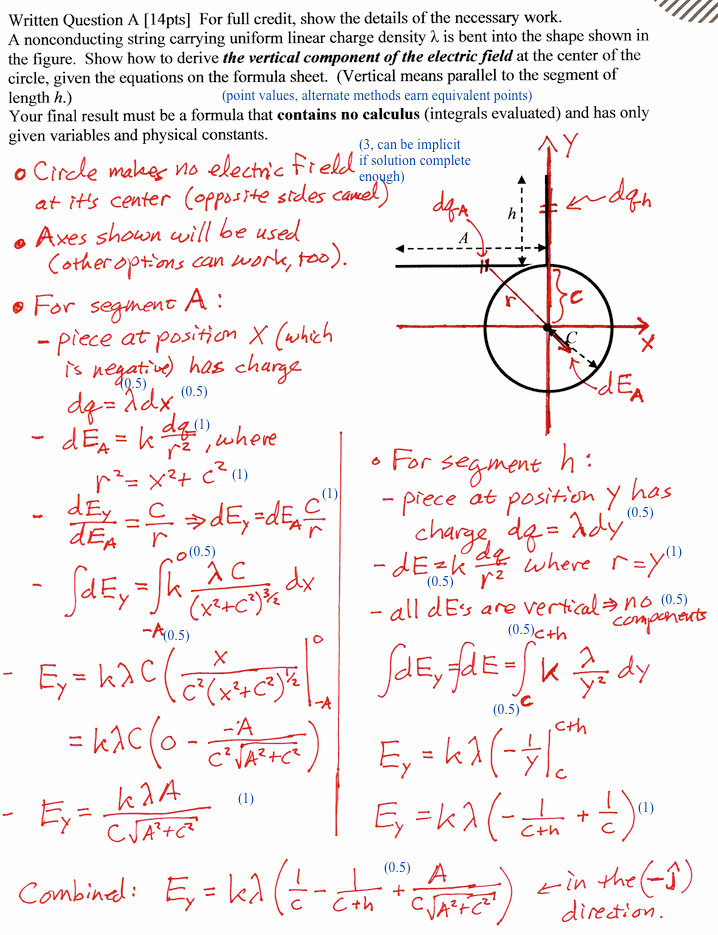 Written Question A [14pts]  For full credit, show the details of the necessary work.
A nonconducting string carrying uniform linear charge density λ is bent into the shape shown in
the figure.  Show how to derive the vertical component of the electric field at the center of the
circle, given the equations on the formula sheet.  (Vertical means parallel to the segment of
length h.)
(point values, alternate methods earn equivalent points)
Your final result must be a formula that contains no calculus (integrals evaluated) and has only
given variables and physical constants.
(3, can be implicit
if solution complete
enough)
• Circle makes no electric field
at it's center (opposite sides cancel)
• Axes shown will be used
(other options can work, too).
• For segment A:
- piece at position X (which
is negative) has charge
(0.5)
dq = λdx (0.5)
- dE_A = k dq/r² (1), where
r² = x² + c² (1)
- dE_y/dE_A = C/r ⇒ dE_y = dE_A C/r (1)
0 (0.5)
- ∫dE_y = ∫k λC/(x²+c²)^3/2 dx
-A (0.5)
- E_y = kλC (x/(c²(x²+c²)^1/2) |_-A^0
= kλC (0 - -A/(c²√(A²+c²)))
- E_y = kλA/(C√(A²+c²)) (1)
Y
dq_A
dq_h
h
A
r
C
C
X
dE_A
• For segment h:
- piece at position y has
charge dq = λdy (0.5)
- dE = k dq/r² where r = y (1)
(0.5)
- all dE's are vertical ⇒ no components (0.5)
(0.5) c+h
∫dE_y = ∫dE = ∫ k λ/y² dy
(0.5) C
E_y = kλ(-1/y)|_c^c+h
E_y = kλ(-1/(c+h) + 1/c) (1)
Combined: E_y = kλ(1/c - 1/(c+h) + A/(C√(A²+c²))) ← in the (-ĵ)
(0.5)
direction.